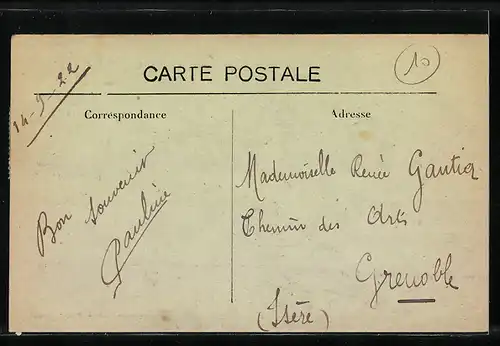 14-9-22
10
CARTE POSTALE
Correspondance
Adresse
Bon souvenir
Pauline
Mademoiselle Renée
Chemin des Arts
Grenoble
(Isère)